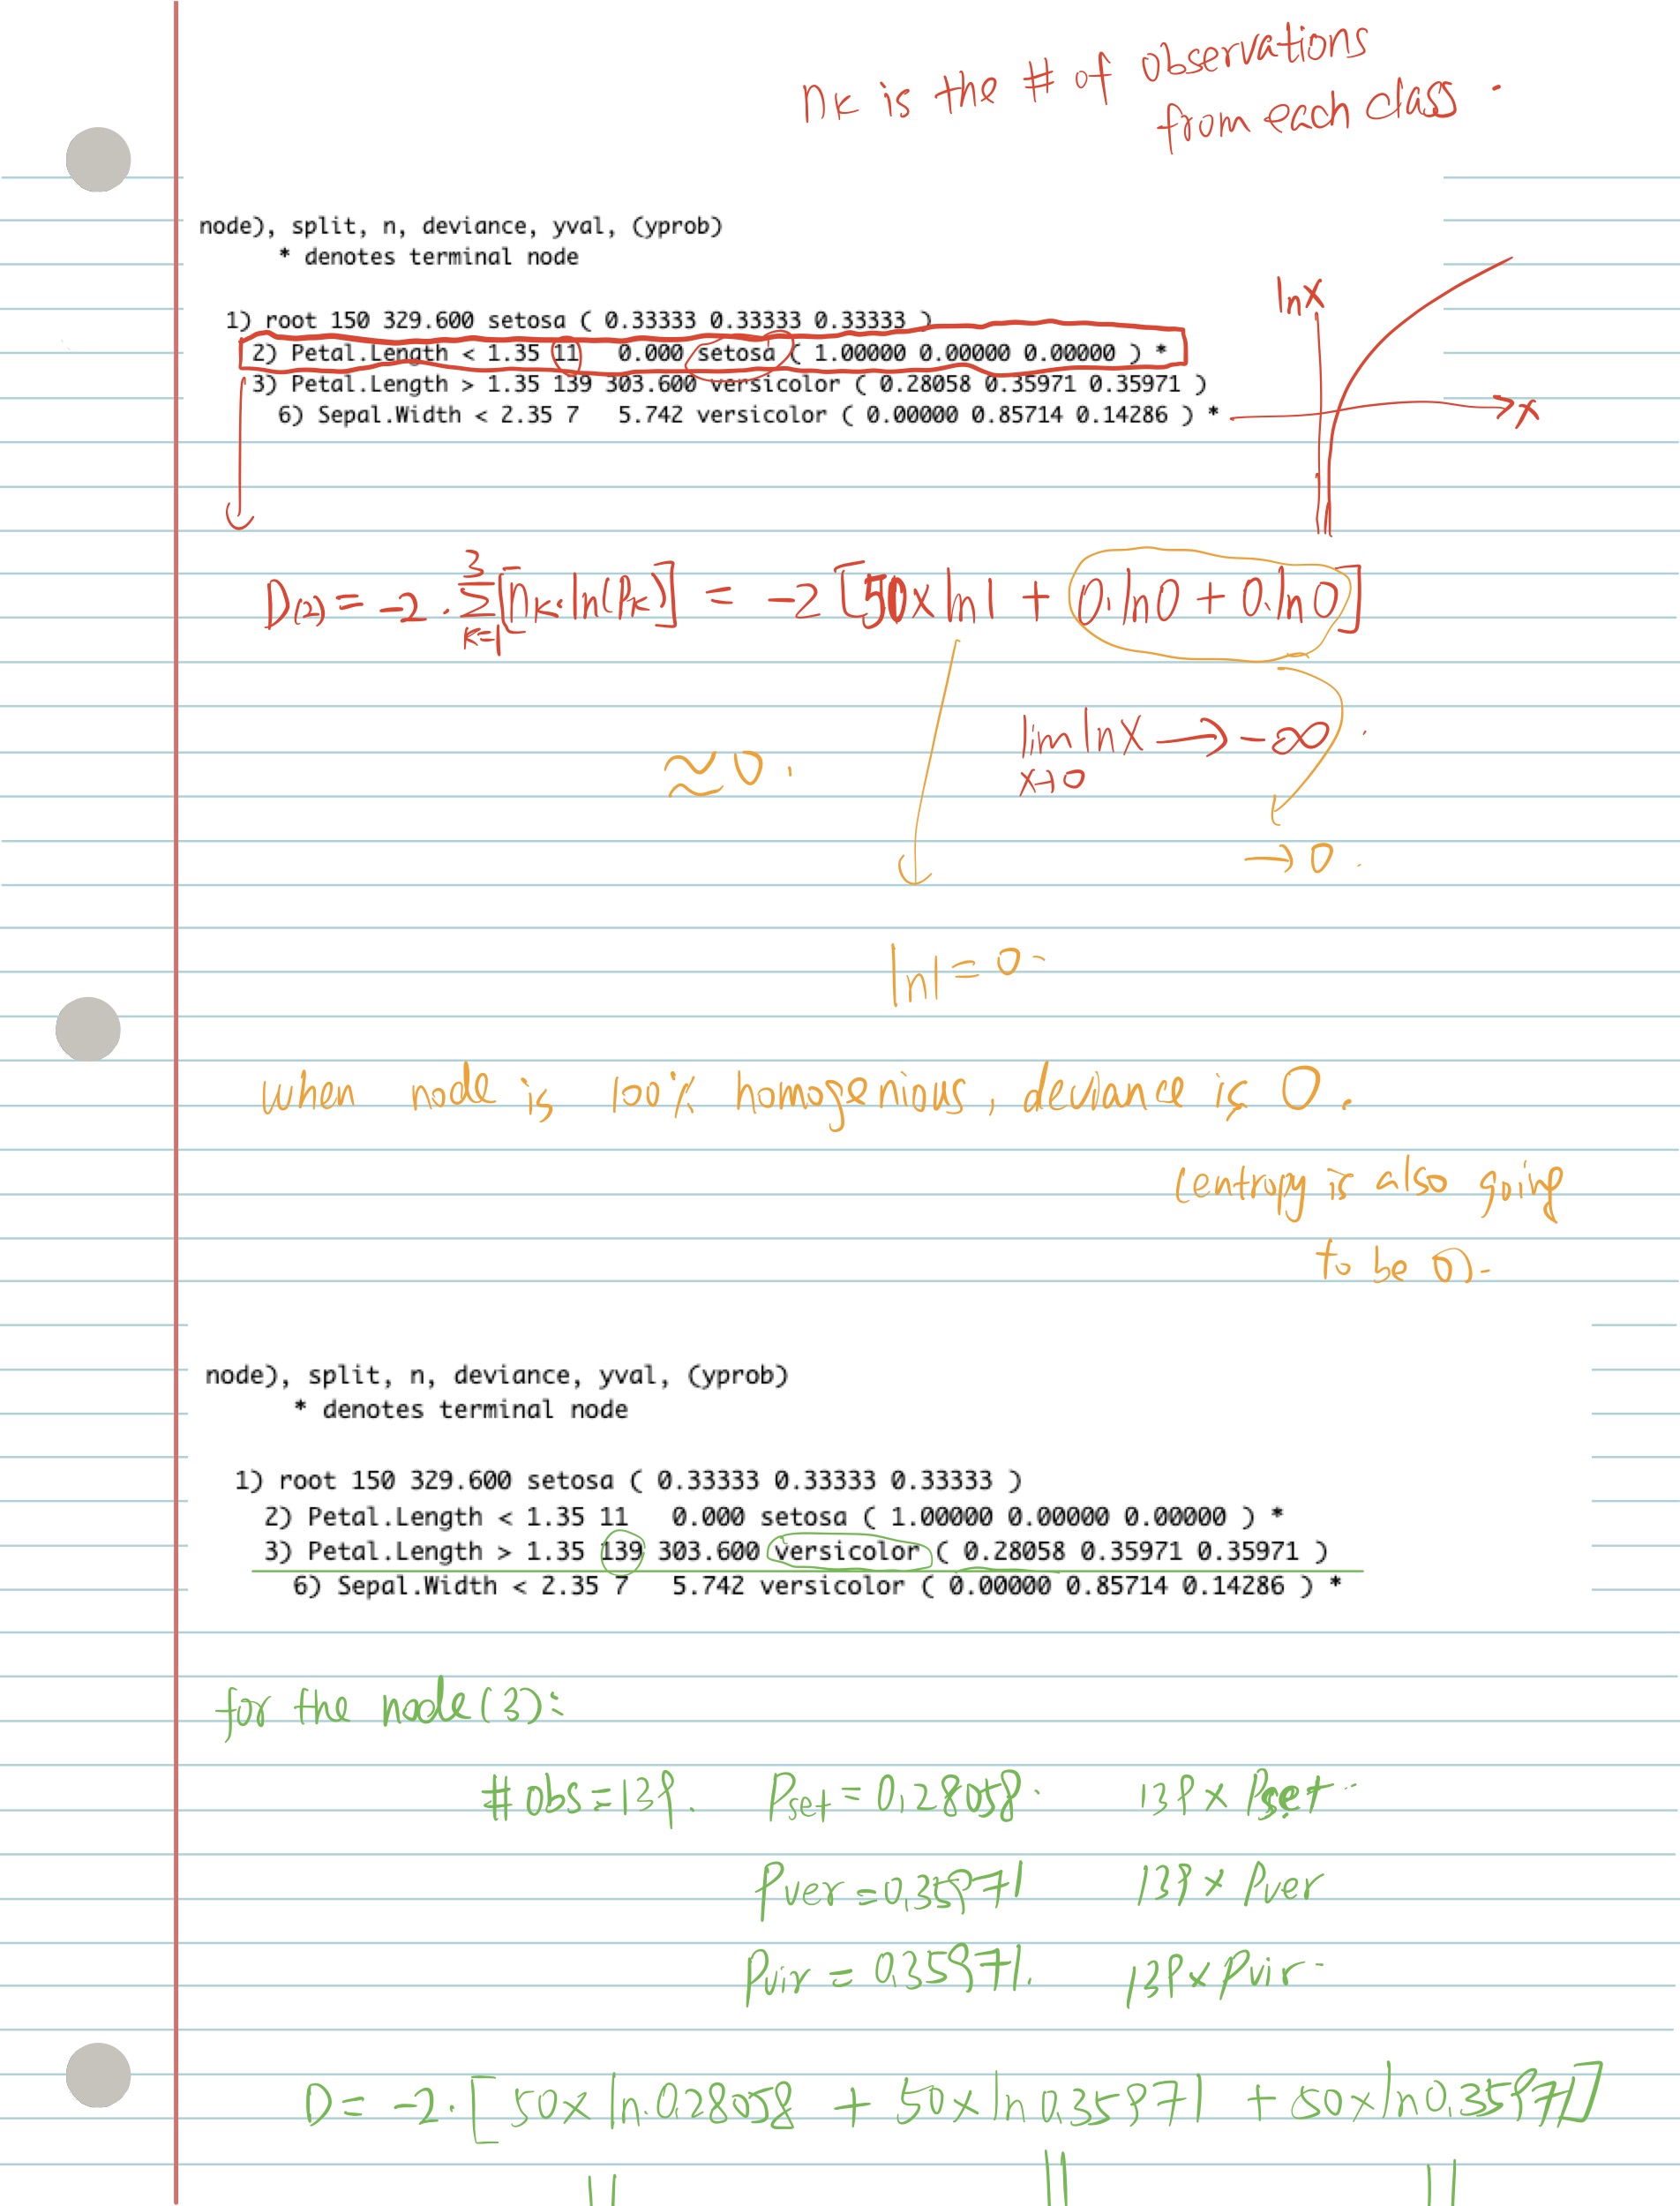 nk is the # of observations
from each class.
node), split, n, deviance, yval, (yprob)
* denotes terminal node
1) root 150 329.600 setosa ( 0.33333 0.33333 0.33333 )
2) Petal.Length < 1.35 11 0.000 setosa ( 1.00000 0.00000 0.00000 ) *
3) Petal.Length > 1.35 139 303.600 versicolor ( 0.28058 0.35971 0.35971 )
6) Sepal.Width < 2.35 7 5.742 versicolor ( 0.00000 0.85714 0.14286 ) *
lnx
x
D(2) = -2 · Σ_{k=1}^{3} [nk · ln(Pk)] = -2 [50 x ln1 + 0.ln0 + 0.ln0]
≈ 0.
lim_{x→0} lnx → -∞.
→ 0.
ln1 = 0.
when node is 100% homogenious, deviance is 0.
(entropy is also going
to be 0).
node), split, n, deviance, yval, (yprob)
* denotes terminal node
1) root 150 329.600 setosa ( 0.33333 0.33333 0.33333 )
2) Petal.Length < 1.35 11 0.000 setosa ( 1.00000 0.00000 0.00000 ) *
3) Petal.Length > 1.35 139 303.600 versicolor ( 0.28058 0.35971 0.35971 )
6) Sepal.Width < 2.35 7 5.742 versicolor ( 0.00000 0.85714 0.14286 ) *
for the node (3):
# obs = 139. Pset = 0,28058. 139 x Pset.
Pver = 0,35971 139 x Pver
Pvir = 0,35971. 139 x Pvir.
D = -2 · [50 x ln.0.28058 + 50 x ln 0.35971 + 50 x ln 0.35971]